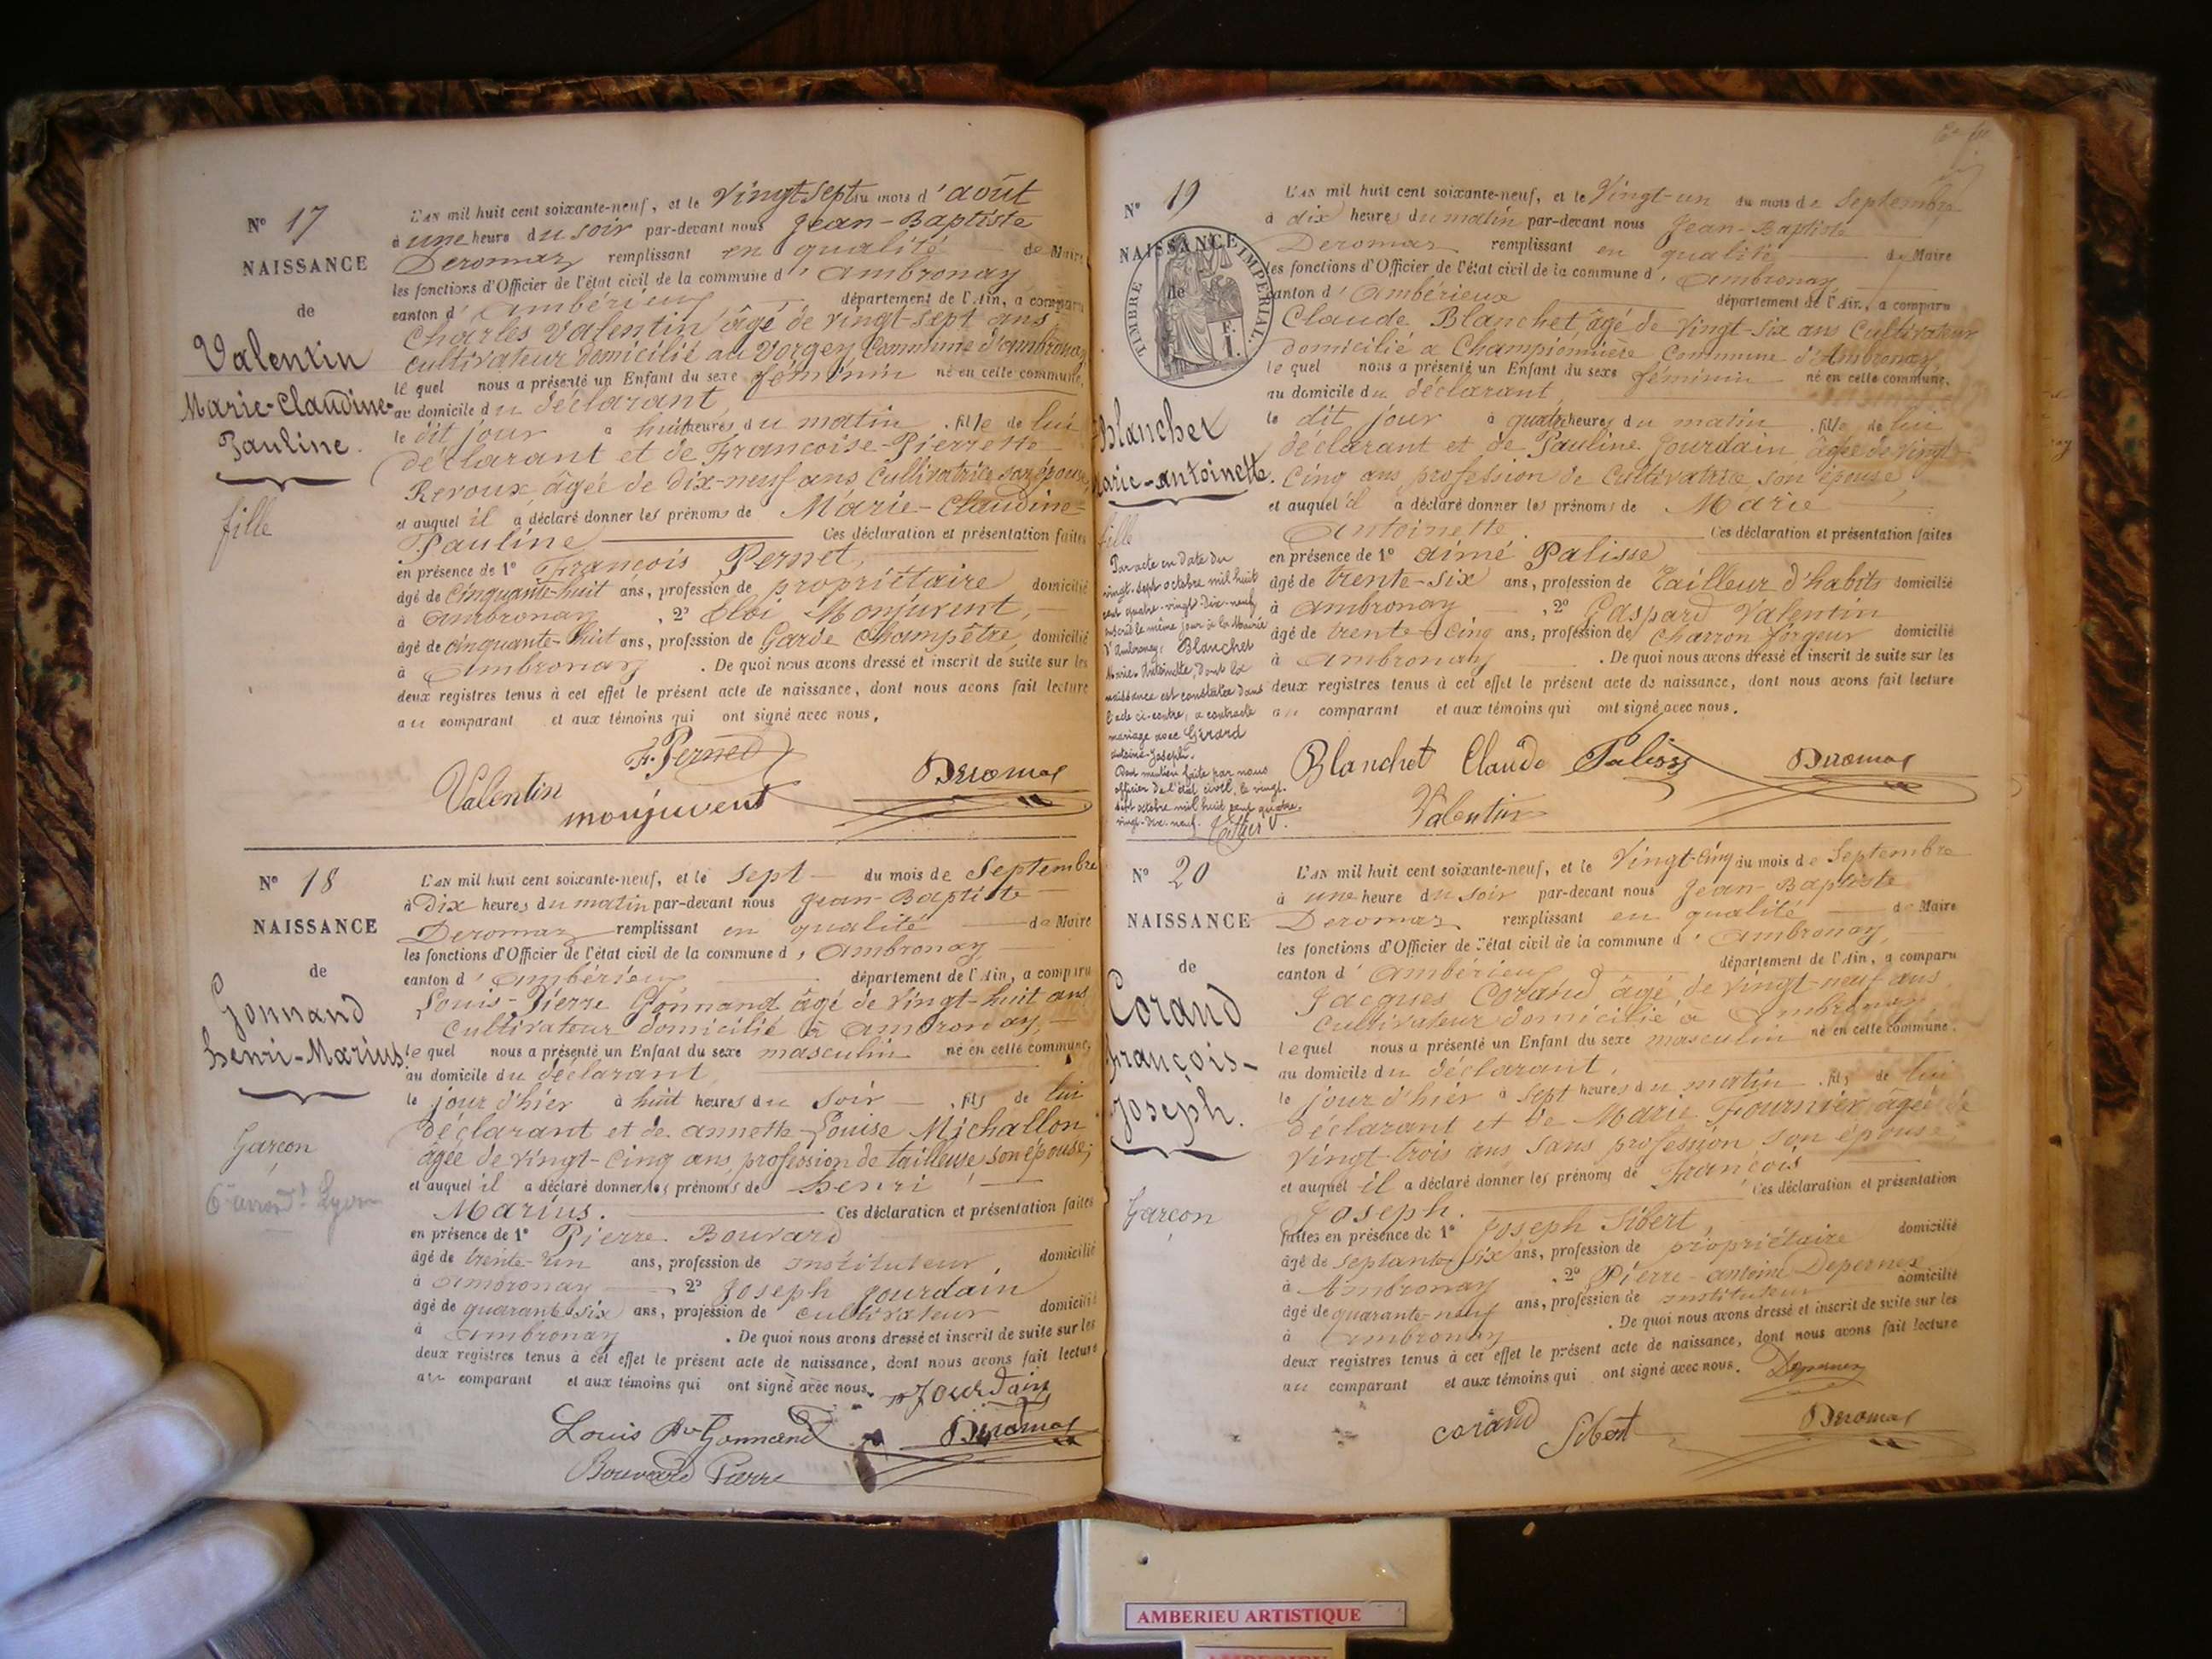 N° 17
NAISSANCE
de
Valentin
Marie-Claudine-
Pauline.
fille
L'AN mil huit cent soixante-neuf, et le Vingt-Sept du mois d'août
à une heure du soir par-devant nous Jean-Baptiste
Deromas remplissant en qualité de Maire
les fonctions d'Officier de l'état civil de la commune d'Ambronay
canton d'Ambérieux département de l'Ain, a comparu
Charles Valentin âgé de vingt-sept ans
cultivateur domicilié au Vorgey Commune d'ambronay
lequel nous a présenté un Enfant du sexe féminin né en cette commune,
au domicile du déclarant,
le dit jour à huit heures du matin, fille de lui
déclarant et de Francoise-Pierrette
Reroux âgée de dix-neuf ans Cultivatrice son épouse,
et auquel il a déclaré donner les prénoms de Marie-Claudine-
Pauline Ces déclaration et présentation faites
en présence de 1° François Pernet,
âgé de Cinquante-huit ans, profession de propriétaire domicilié
à Ambronay, 2° Eloi Monjuvent,
âgé de cinquante-huit ans, profession de Garde Champêtre, domicilié
à Ambronay. De quoi nous avons dressé et inscrit de suite sur les
deux registres tenus à cet effet le présent acte de naissance, dont nous avons fait lecture
au comparant et aux témoins qui ont signé avec nous.
F. Pernet
Valentin Deromas
monjuvent
N° 18
NAISSANCE
de
Gonnand
henri-Marius.
Garçon
6e arrondt Lyon
L'AN mil huit cent soixante-neuf, et le Sept du mois de Septembre
à Dix heures du matin par-devant nous Jean-Baptiste
Deromas remplissant en qualité de Maire
les fonctions d'Officier de l'état civil de la commune d'Ambronay
canton d'Ambérieux département de l'Ain, a comparu
Louis-Pierre Gonnand âgé de vingt-huit ans
Cultivateur domicilié à Ambronay,
lequel nous a présenté un Enfant du sexe masculin né en cette commune,
au domicile du déclarant,
le jour d'hier à huit heures du soir, fils de lui
déclarant et de annette-Louise Michallon
âgée de vingt-cinq ans, profession de tailleuse, son épouse;
et auquel il a déclaré donner les prénoms de henri
Marius. Ces déclaration et présentation faites
en présence de 1° Pierre Bouvard
âgé de trente-un ans, profession de instituteur domicilié
à Ambronay 2° Joseph Jourdain
âgé de quarante six ans, profession de cultivateur domicilié
à Ambronay. De quoi nous avons dressé et inscrit de suite sur les
deux registres tenus à cet effet le présent acte de naissance, dont nous avons fait lecture
au comparant et aux témoins qui ont signé avec nous.
Jourdain
Louis Gonnand Deromas
Bouvard Pierre
N° 19
NAISSANCE
de
TIMBRE IMPÉRIAL
F.
I.
Blanchet
Marie-antoinette.
fille
Par acte en date du
vingt-sept octobre mil huit
cent quatre-vingt-dix-neuf
inscrit le même jour à la Mairie
d'Ambronay, Blanchet
Marie-Antoinette, dont la
naissance est constatée dans
l'acte ci-contre, a contracté
mariage avec Girard
Antoine-Joseph.
Dont mention faite par nous
officier de l'état civil, le vingt-
sept octobre mil huit cent quatre-
vingt-dix-neuf.
L'AN mil huit cent soixante-neuf, et le Vingt-un du mois de Septembre
à dix heures du matin par-devant nous Jean-Baptiste
Deromas remplissant en qualité de Maire
les fonctions d'Officier de l'état civil de la commune d'Ambronay
canton d'Ambérieux département de l'Ain, a comparu
Claude Blanchet, âgé de vingt-six ans Cultivateur
domicilié à Championnière Commune d'Ambronay,
lequel nous a présenté un Enfant du sexe féminin né en cette commune,
au domicile du déclarant,
le dit jour à quatre heures du matin, fille de lui
déclarant et de Pauline Jourdain âgée de vingt-
Cinq ans profession de Cultivatrice son épouse,
et auquel il a déclaré donner les prénoms de Marie
Antoinette. Ces déclaration et présentation faites
en présence de 1° aimé Palisse
âgé de trente-six ans, profession de Tailleur d'habits domicilié
à Ambronay, 2° Gaspard Valentin
âgé de trente-cinq ans, profession de charron forgeur domicilié
à Ambronay. De quoi nous avons dressé et inscrit de suite sur les
deux registres tenus à cet effet le présent acte de naissance, dont nous avons fait lecture
au comparant et aux témoins qui ont signé avec nous.
Blanchet Claude Palisse Deromas
Valentin
N° 20
NAISSANCE
de
Corand
françois-
Joseph.
Garçon
L'AN mil huit cent soixante-neuf, et le Vingt-cinq du mois de Septembre
à une heure du soir par-devant nous Jean-Baptiste
Deromas remplissant en qualité de Maire
les fonctions d'Officier de l'état civil de la commune d'Ambronay,
canton d'Ambérieux département de l'Ain, a comparu
Jacques Corand âgé de vingt-neuf ans
Cultivateur domicilié à Ambronay,
lequel nous a présenté un Enfant du sexe masculin né en cette commune,
au domicile du déclarant,
le jour d'hier à sept heures du matin, fils de lui
déclarant et de Marie Fournier, âgée de
vingt-trois ans sans profession son épouse,
et auquel il a déclaré donner les prénoms de François
Joseph. Ces déclaration et présentation
faites en présence de 1° Joseph Sibert,
âgé de septante six ans, profession de propriétaire domicilié
à Ambronay, 2° Pierre-antoine Depernex
âgé de quarante-neuf ans, profession de instituteur domicilié
à Ambronay. De quoi nous avons dressé et inscrit de suite sur les
deux registres tenus à cet effet le présent acte de naissance, dont nous avons fait lecture
au comparant et aux témoins qui ont signé avec nous. Depernex
corand Sibert Deromas
AMBERIEU ARTISTIQUE